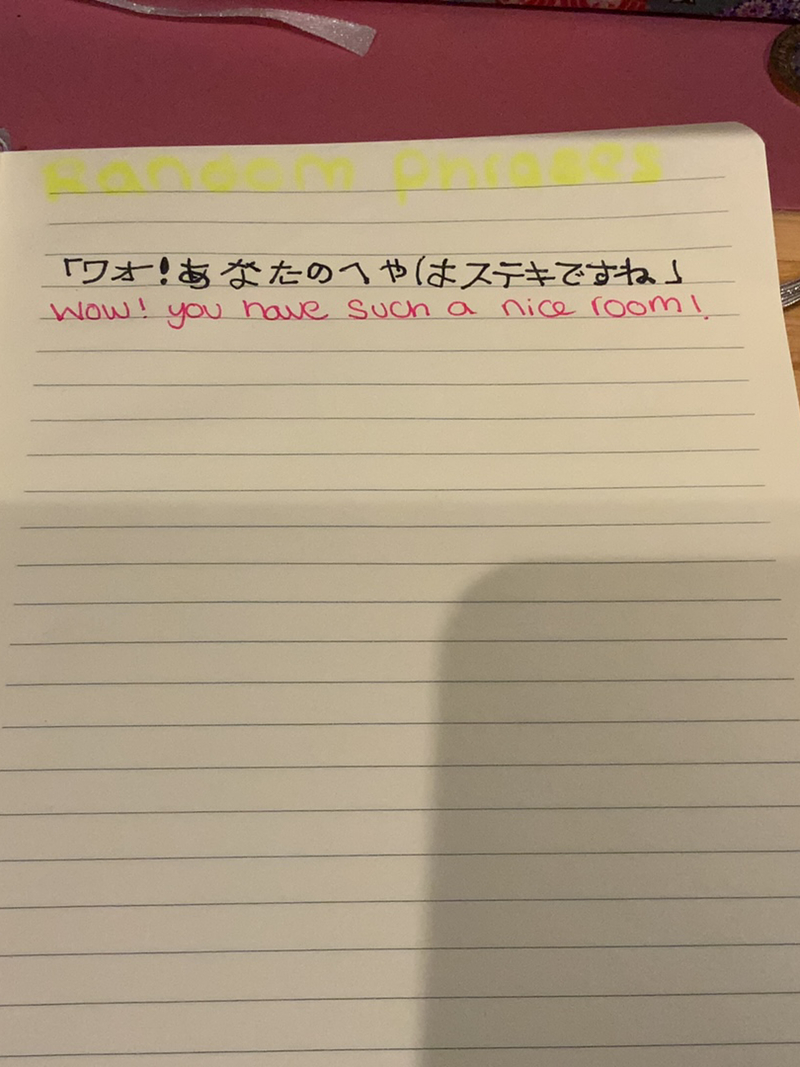 Random phrases
「ワオ!あなたのへやはステキですね」
Wow! you have such a nice room!